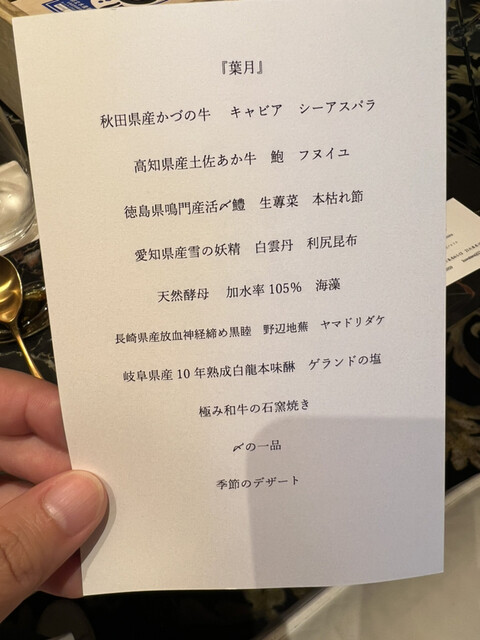 『葉月』
秋田県産かづの牛 キャビア シーアスパラ
高知県産土佐あか牛 鮑 フヌイユ
徳島県鳴門産活〆鱧 生蓴菜 本枯れ節
愛知県産雪の妖精 白雲丹 利尻昆布
天然酵母 加水率105% 海藻
長崎県産放血神経締め黒睦 野辺地蕪 ヤマドリダケ
岐阜県産10年熟成白龍本味醂 ゲランドの塩
極み和牛の石窯焼き
〆の一品
季節のデザート